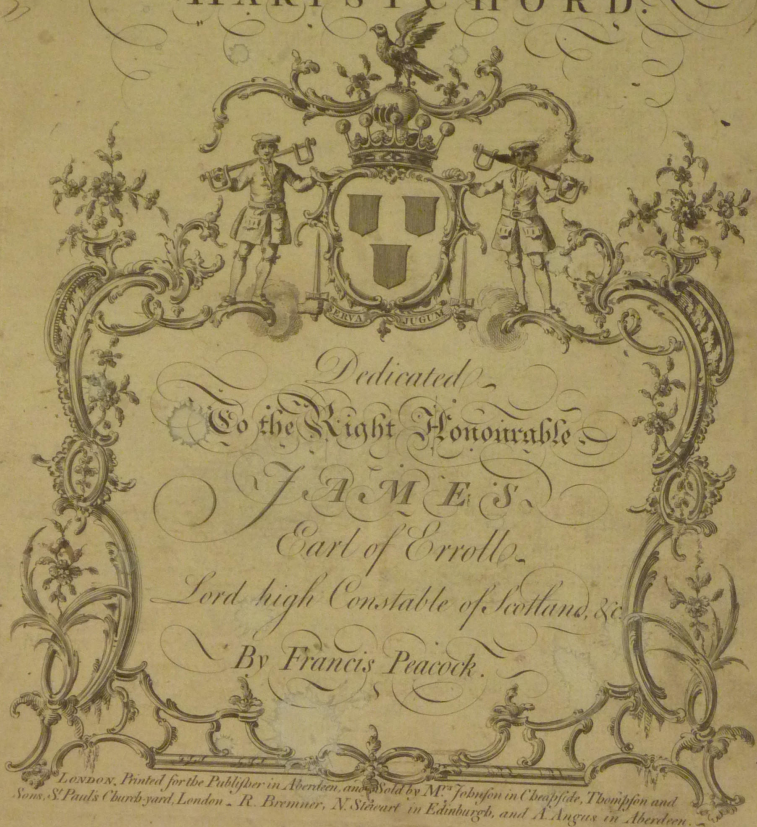 HARPSICHORD.
SERVA JUGUM
Dedicated
To the Right Honourable
JAMES
Earl of Erroll
Lord high Constable of Scotland, &c.
By Francis Peacock.
LONDON, Printed for the Publisher in Aberdeen, and Sold by Mrs. Johnson in Cheapside, Thompson and
Sons, St. Pauls Church-yard, London - R. Bremner, N. Stewart in Edinburgh, and A. Angus in Aberdeen.